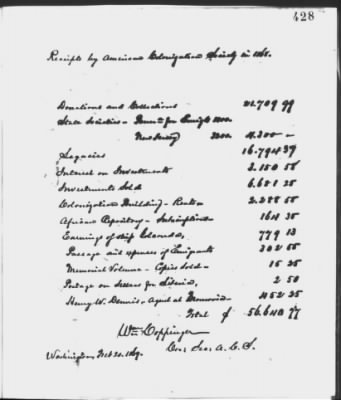 428
Receipts by American Colonization Society in 1868.
Donations and Collections 21.709 99
State Societies - for Emigts 1000.
New Jersey 3300. 4.300 -
Legacies 16.794 39
Interest on Investments 2.150 58
Investments Sold 6.681 25
Colonization Building - Rents 2.288 55
African Repository - Subscriptions 164 35
Earnings of ship Golconda, 779 13
Passage and expenses of Emigrants 302 55
Memorial Volume - Copies Sold - 15 25
Postage on Letters for Liberia, 2 50
Henry W. Dennis - Agent at Monrovia - 1452 25
Total $ 56.640 77
Wm Coppinger
Cor. Sec. A. C. S.
Washington, Feb 20. 1869.